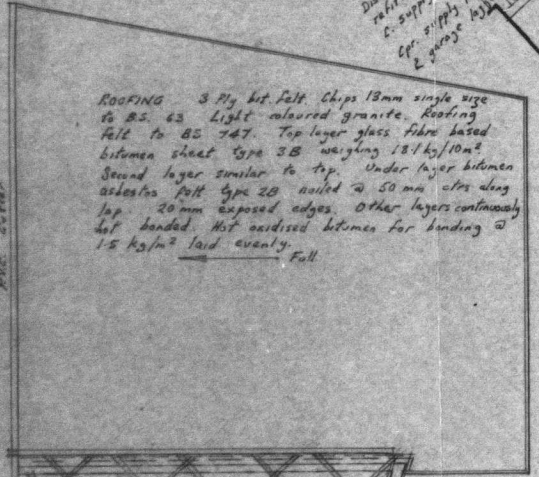 ROOFING 3 Ply bit. felt. Chips 13mm single size
to B.S. 63 Light coloured granite. Roofing
felt to BS 747. Top layer glass fibre based
bitumen sheet type 3B weighing 18.1 kg/10m²
Second layer similar to top. Under layer bitumen
asbestos felt type 2B nailed @ 50 mm ctrs along
lap. 20 mm exposed edges. Other layers continuously
hot bonded. Hot oxidised bitumen for bonding @
1.5 kg/m² laid evenly.
Fall
C. supply
Cpr. supply
& garage